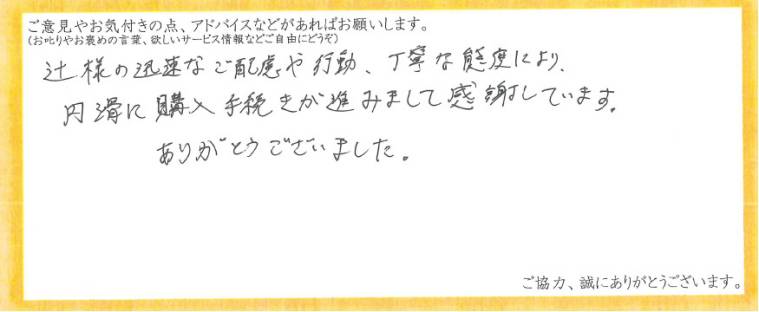 ご意見やお気付きの点、アドバイスなどがあればお願いします。
(お叱りやお褒めの言葉、欲しいサービス情報などご自由にどうぞ)
辻様の迅速なご配慮や行動、丁寧な態度により、
円滑に購入手続きが進みまして感謝しています。
ありがとうございました。
ご協力、誠にありがとうございます。